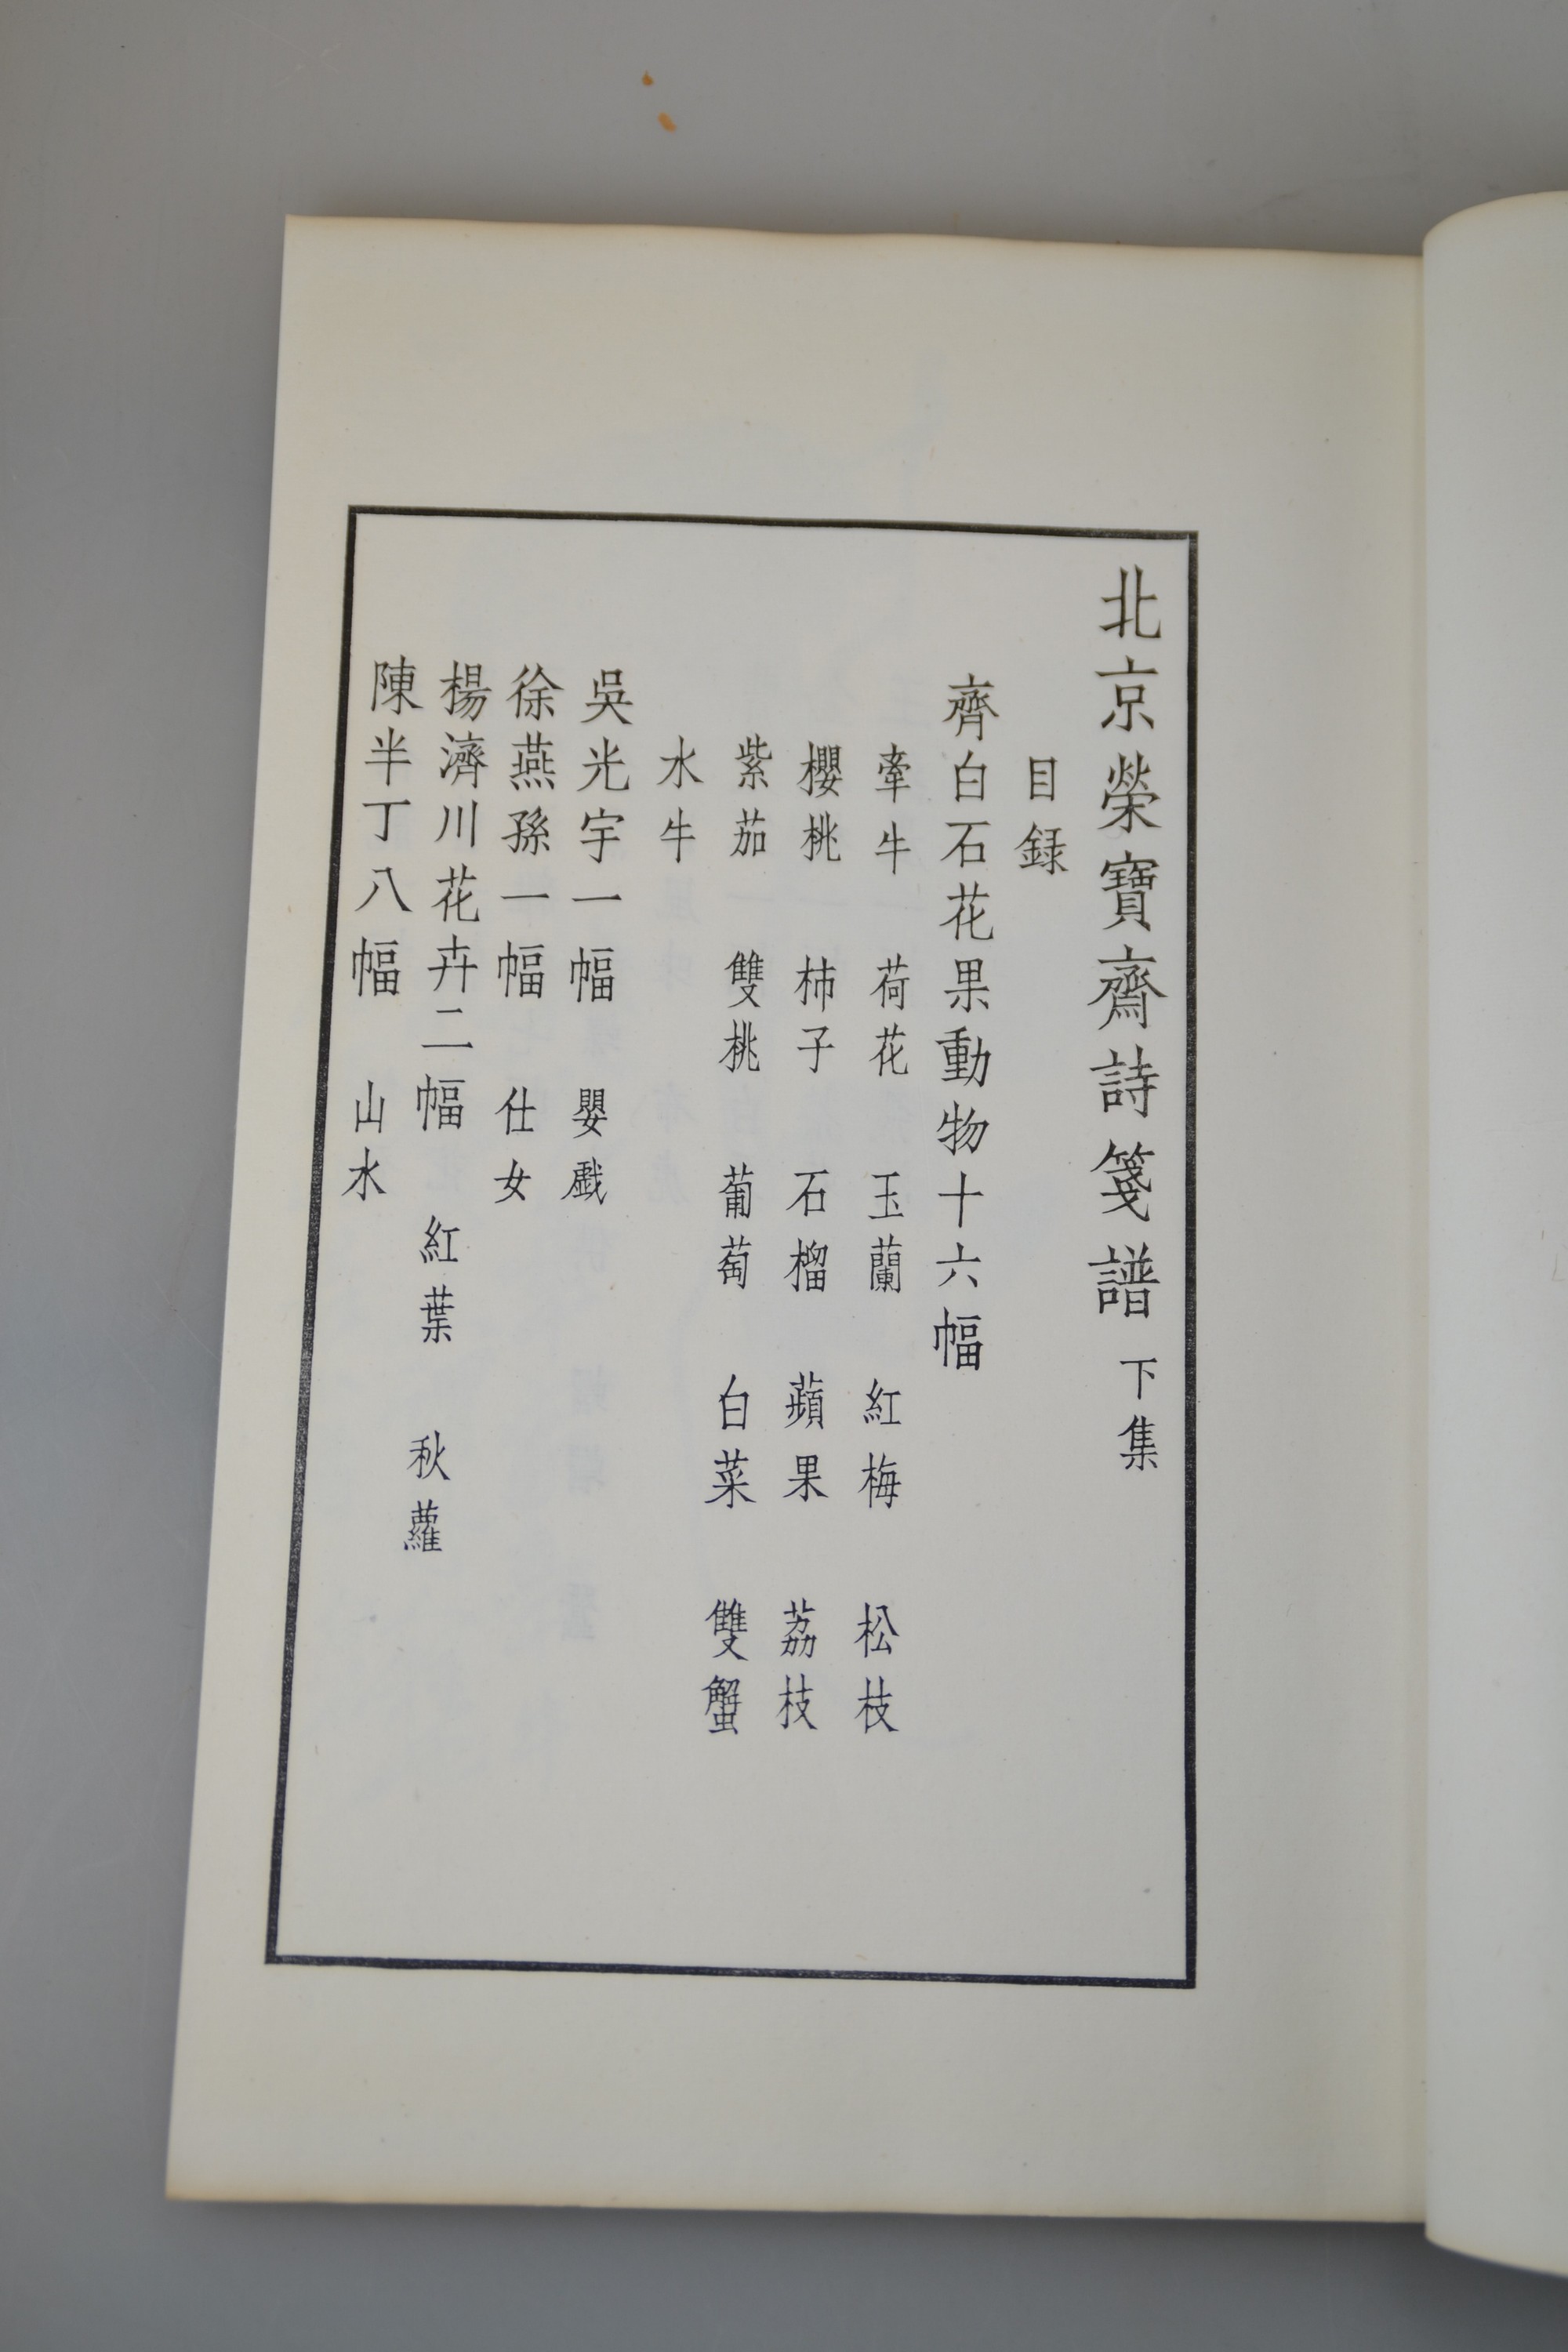 北京榮寶齋詩箋譜 下集
目録
齊白石花果動物十六幅
牽牛 荷花 玉蘭 紅梅 松枝
櫻桃 柿子 石榴 蘋果 荔枝
紫茄 雙桃 葡萄 白菜 雙蟹
水牛
吳光宇一幅 嬰戲
徐燕孫一幅 仕女
楊濟川花卉二幅 紅葉 秋蘿
陳半丁八幅 山水